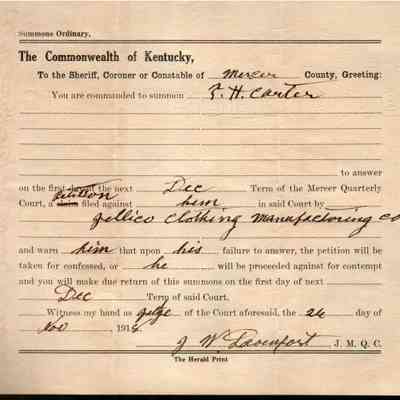 Summons Ordinary.
The Commonwealth of Kentucky,
To the Sheriff, Coroner or Constable of Mercer County, Greeting:
You are commanded to summon T. H. Carter
to answer
on the first day of the next Dec Term of the Mercer Quarterly
petition
Court, a claim filed against him in said Court by
Jellico Clothing Manufactoring Co
and warn him that upon his failure to answer, the petition will be
taken for confessed, or he will be proceeded against for contempt
and you will make due return of this summons on the first day of next
Dec Term of said Court.
Witness my hand as Judge of the Court aforesaid, the 24 day of
Nov 191
J W. Davenport J. M. Q. C.
The Herald Print